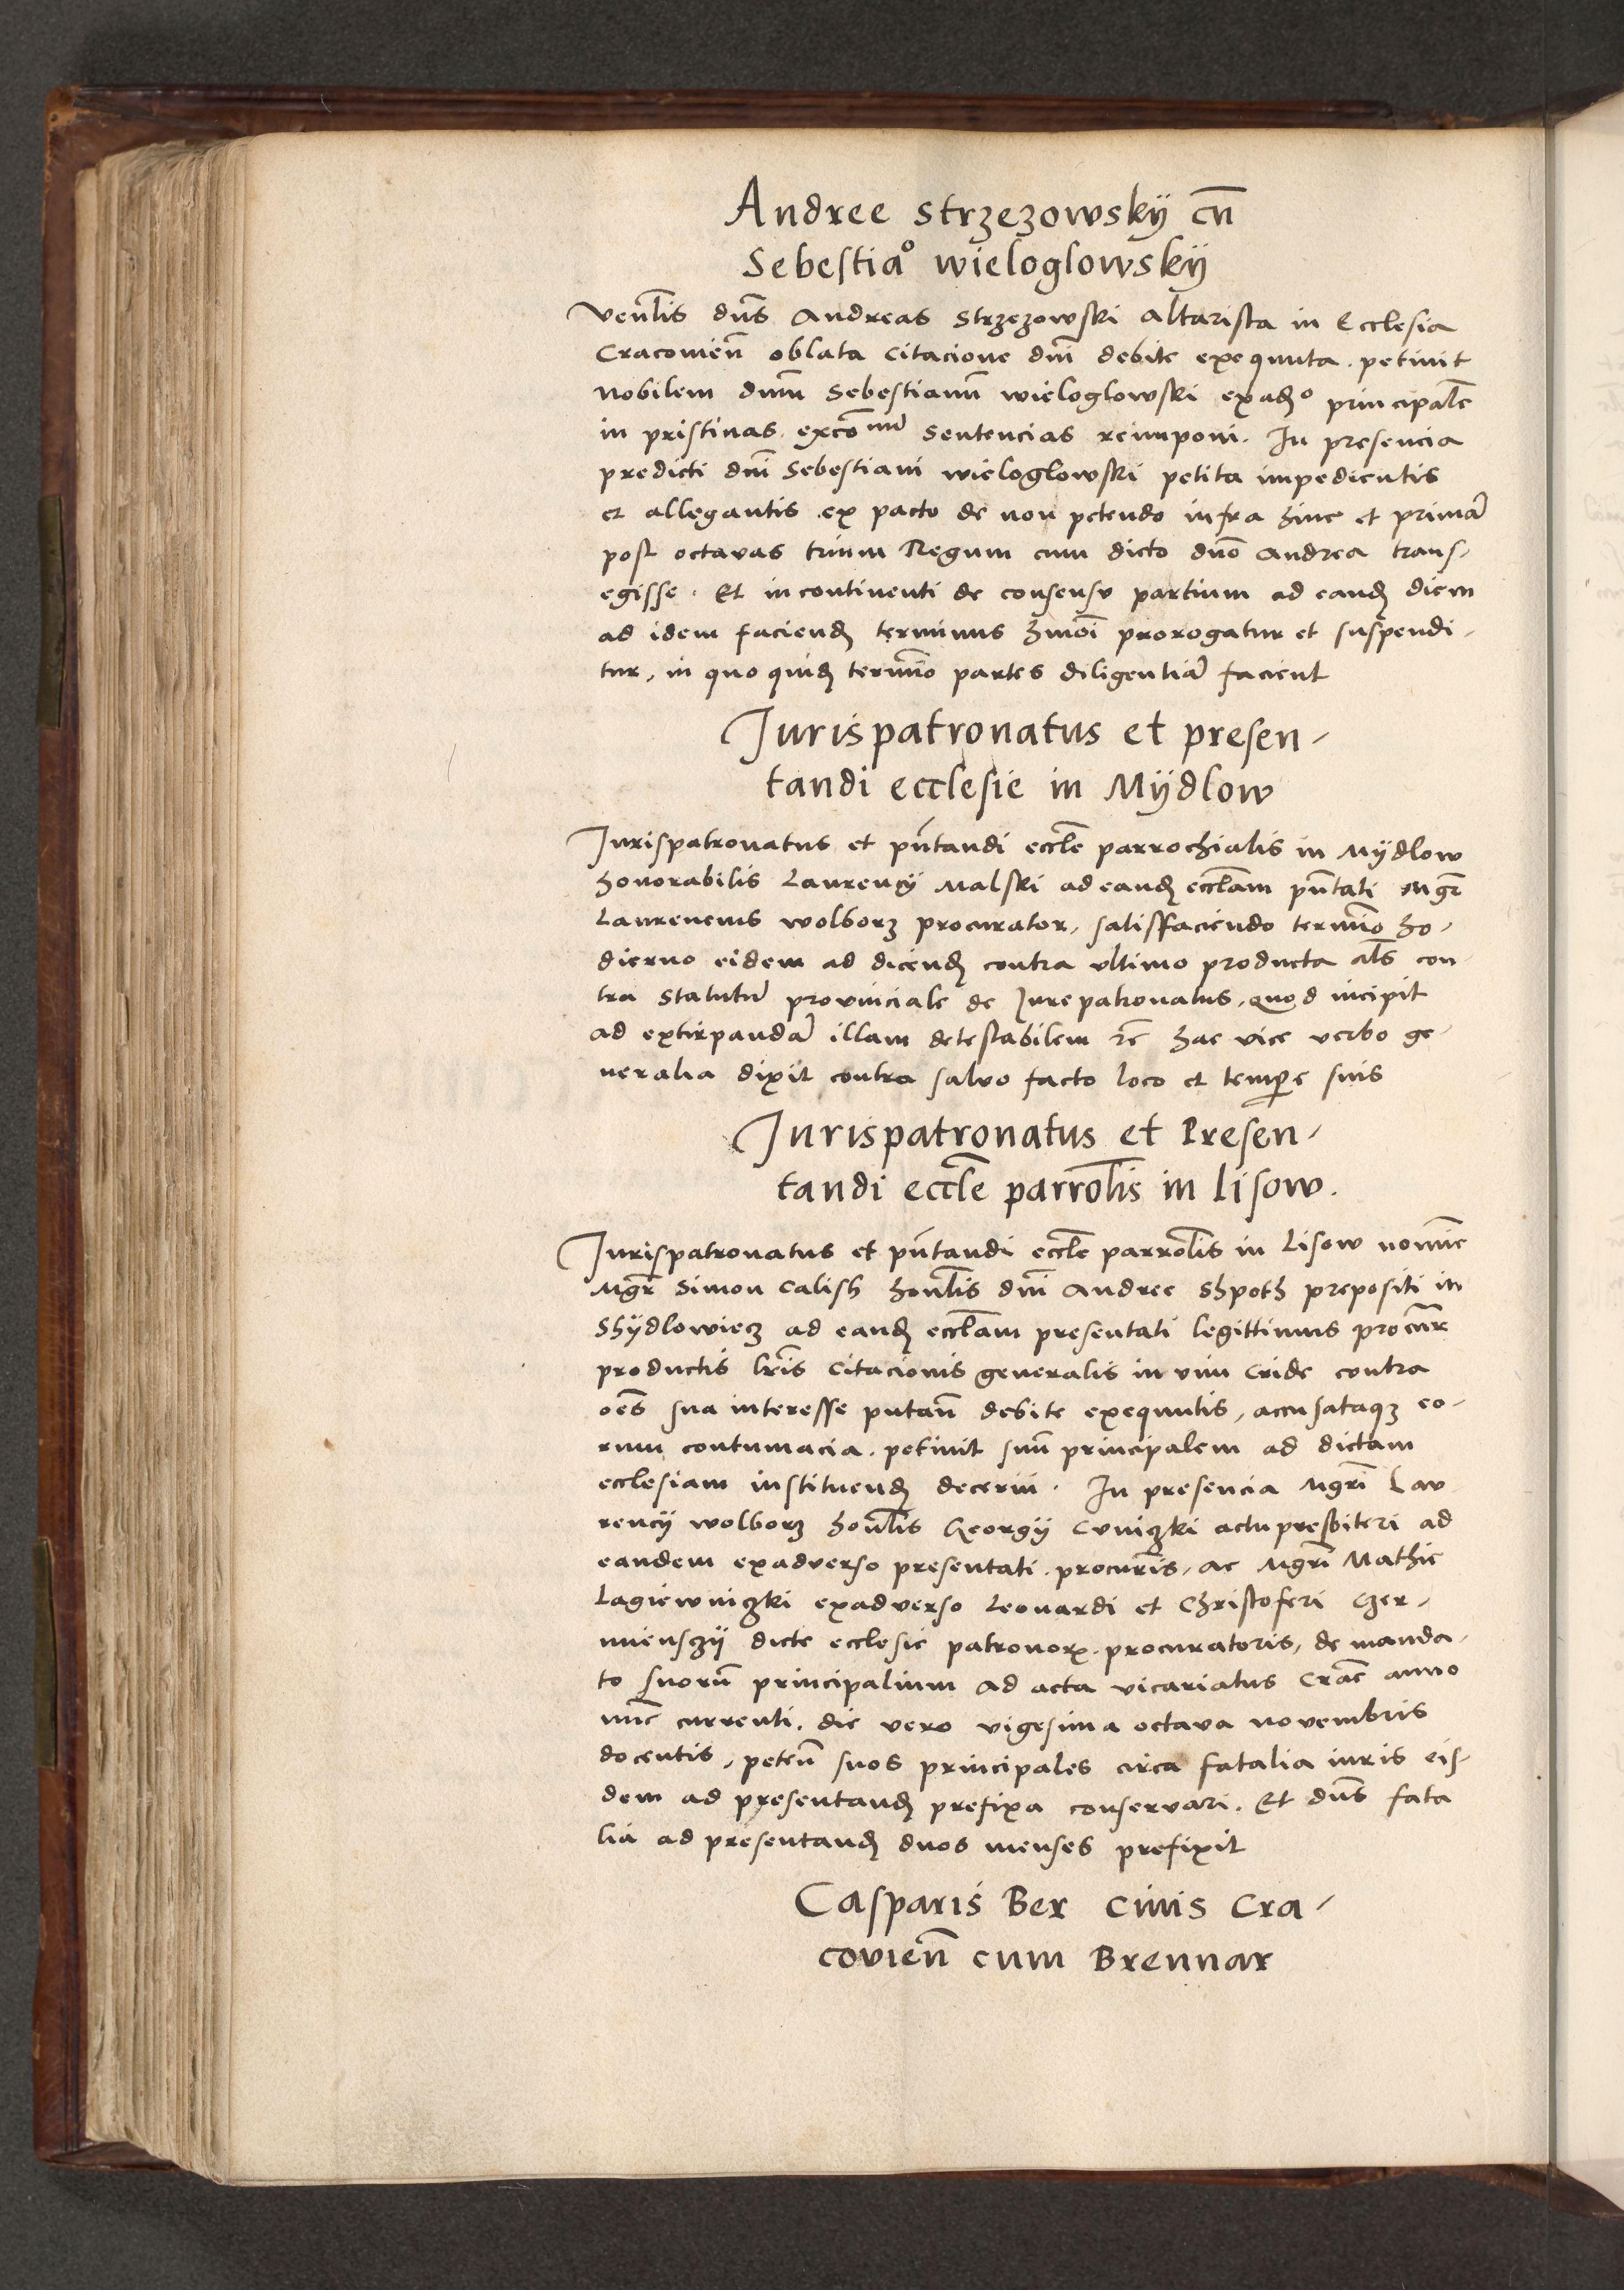 Andree Strzezowskÿ cū
Sebestiaº wieloglowskÿ
Venlis dn̄s Andreas Strzezowski Altarista in Ecclesia
Cracovien̄ oblata Citacione dn̄i debite exequuta. petivit
Nobilem dn̄m Sebestianū wieloglowski exadº principalē
in pristinas excōnū sentencias reimponi. In presencia
predicti dn̄i Sebestiani wieloglowski petita impedientis
et allegantis ex pacto de non petendo infra hinc et primā
post octavas trium Regum cum dicto dn̄o Andrea trans-
egisse. Et incontinenti de consensu partium ad eand diem
ad idem faciend terminus hmōi prorogatur et suspendi-
tur, in quo quid termīo partes diligentiā facient
Jurispatronatus et presen-
tandi ecclesie in Mÿdlow
Jurispatronatus et pn̄tandi eccl̄e parrochialis in Mÿdlow
honorabilis Laurency Malski ad eand eccl̄am pn̄tati Mgr̄
Laurencius wolborz procurator, satisfaciendo termīo ho-
dierno eidem ad dicend contra ultimo producta al̄s con
tra Statutū provinciale de Jurepatronatus, quod incipit
ad extirpandā illam detestabilem rē hac vice verbo ge-
neralia dixit contra salvo facto loco et temp̄e suis
Jurispatronatus et Presen-
tandi eccl̄e parrol̄is in Lisow.
Jurispatronatus et pn̄tandi eccl̄e parrol̄is in Lisow nomīe
Mgr̄ Simon Calish honl̄is dn̄i Andree Shpoth prepositi in
Shÿdlowiecz ad eand eccl̄am presentati legittimus procūr
productis lr̄is Citacionis generalis in vim Cride contra
oēs sua interesse putan̄ debite exequutis, accusataqz eo-
rum contumacia. petivit suū principalem ad dictam
ecclesiam instituend decerni. In presencia Mgr̄i Lau
rencÿ wolborz honl̄is Georgÿ Cuniczki actu presbiteri ad
eandem exadverso presentati. procur̄is, ac Mgr̄i Mathie
Lagiewniczki exadverso Leonardi et Christoferi Czer-
nienszÿ dicte ecclesie patronorꝝ. procuratoris, de manda-
to suorū principalium ad acta vicariatus Crac̄ anno
nunc currenti. die vero vigesima octava novembris
docentis, peten̄ suos principales circa fatalia iuris eis-
dem ad presentand prefixa conservari. Et dn̄s fata
lia ad presentand duos menses prefixit
Casparis Ber Civis Cra-
covien̄ cum Brennar